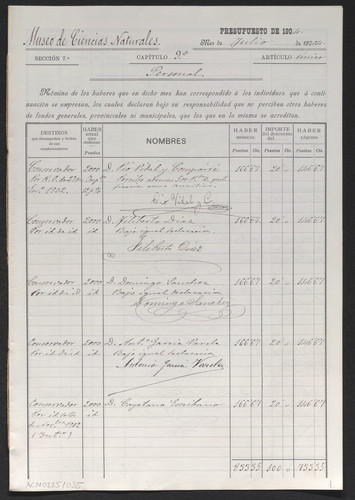 Museo de Ciencias Naturales.
PRESUPUESTO DE 190
Mes de Julio de 190
SECCIÓN 7.ª
CAPÍTULO 9.º
ARTÍCULO único
Personal
Nómina de los haberes que en dicho mes han correspondido á los individuos que á conti-
nuación se expresan, los cuales declaran bajo su responsabilidad que no perciben otros haberes
de fondos generales, provinciales ni municipales, que los que en la misma se acreditan.
DESTINOS
que desempeñan y fechas
de sus
nombramientos
HABER
anual
que
disfrutan
Pesetas
NOMBRES
HABER
MENSUAL
Pesetas Cts.
IMPORTE
del descuento
del
100.
HABER
LÍQUIDO
Pesetas Cts.
Conservador 2000 D. Pío Vidal y Compairé 166 67 20 146 67
1902.
Pío Vidal y C
Conservador 2000 D. Filiberto Díaz 166 67 20 146 67
Por id de id id Bajo igual declaración
Filiberto Díaz
Conservador 2000 D. Domingo Sanchez 166 67 20 146 67
Por id de id id Bajo igual declaración
Domingo Sanchez
Conservador 2000 D. Ant.º García Varela 166 67 20 146 67
Por id de id id Bajo igual declaración
Antonio García Varela
Conservador 2000 D. Cayetano Escribano 166 67 20 146 67
Por id id
1902
833 35 100 733 35
ACN0225/035